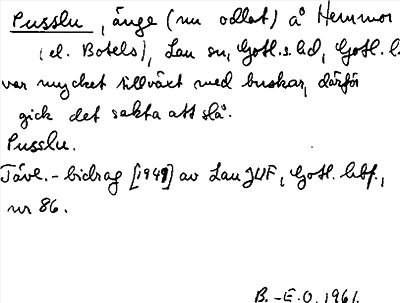 Pusslu, änge (nu odlat) å Hemmor
(el. Botels), Lau sn, Gotl. s. hd, Gotl. l.
var mycket tillväxt med buskar, därför
gick det sakta att slå.
Pusslu.
Tävl.-bidrag [1949] av Lau JUF, Gotl. hbf.,
nr 86.
B.-E.O. 1961.